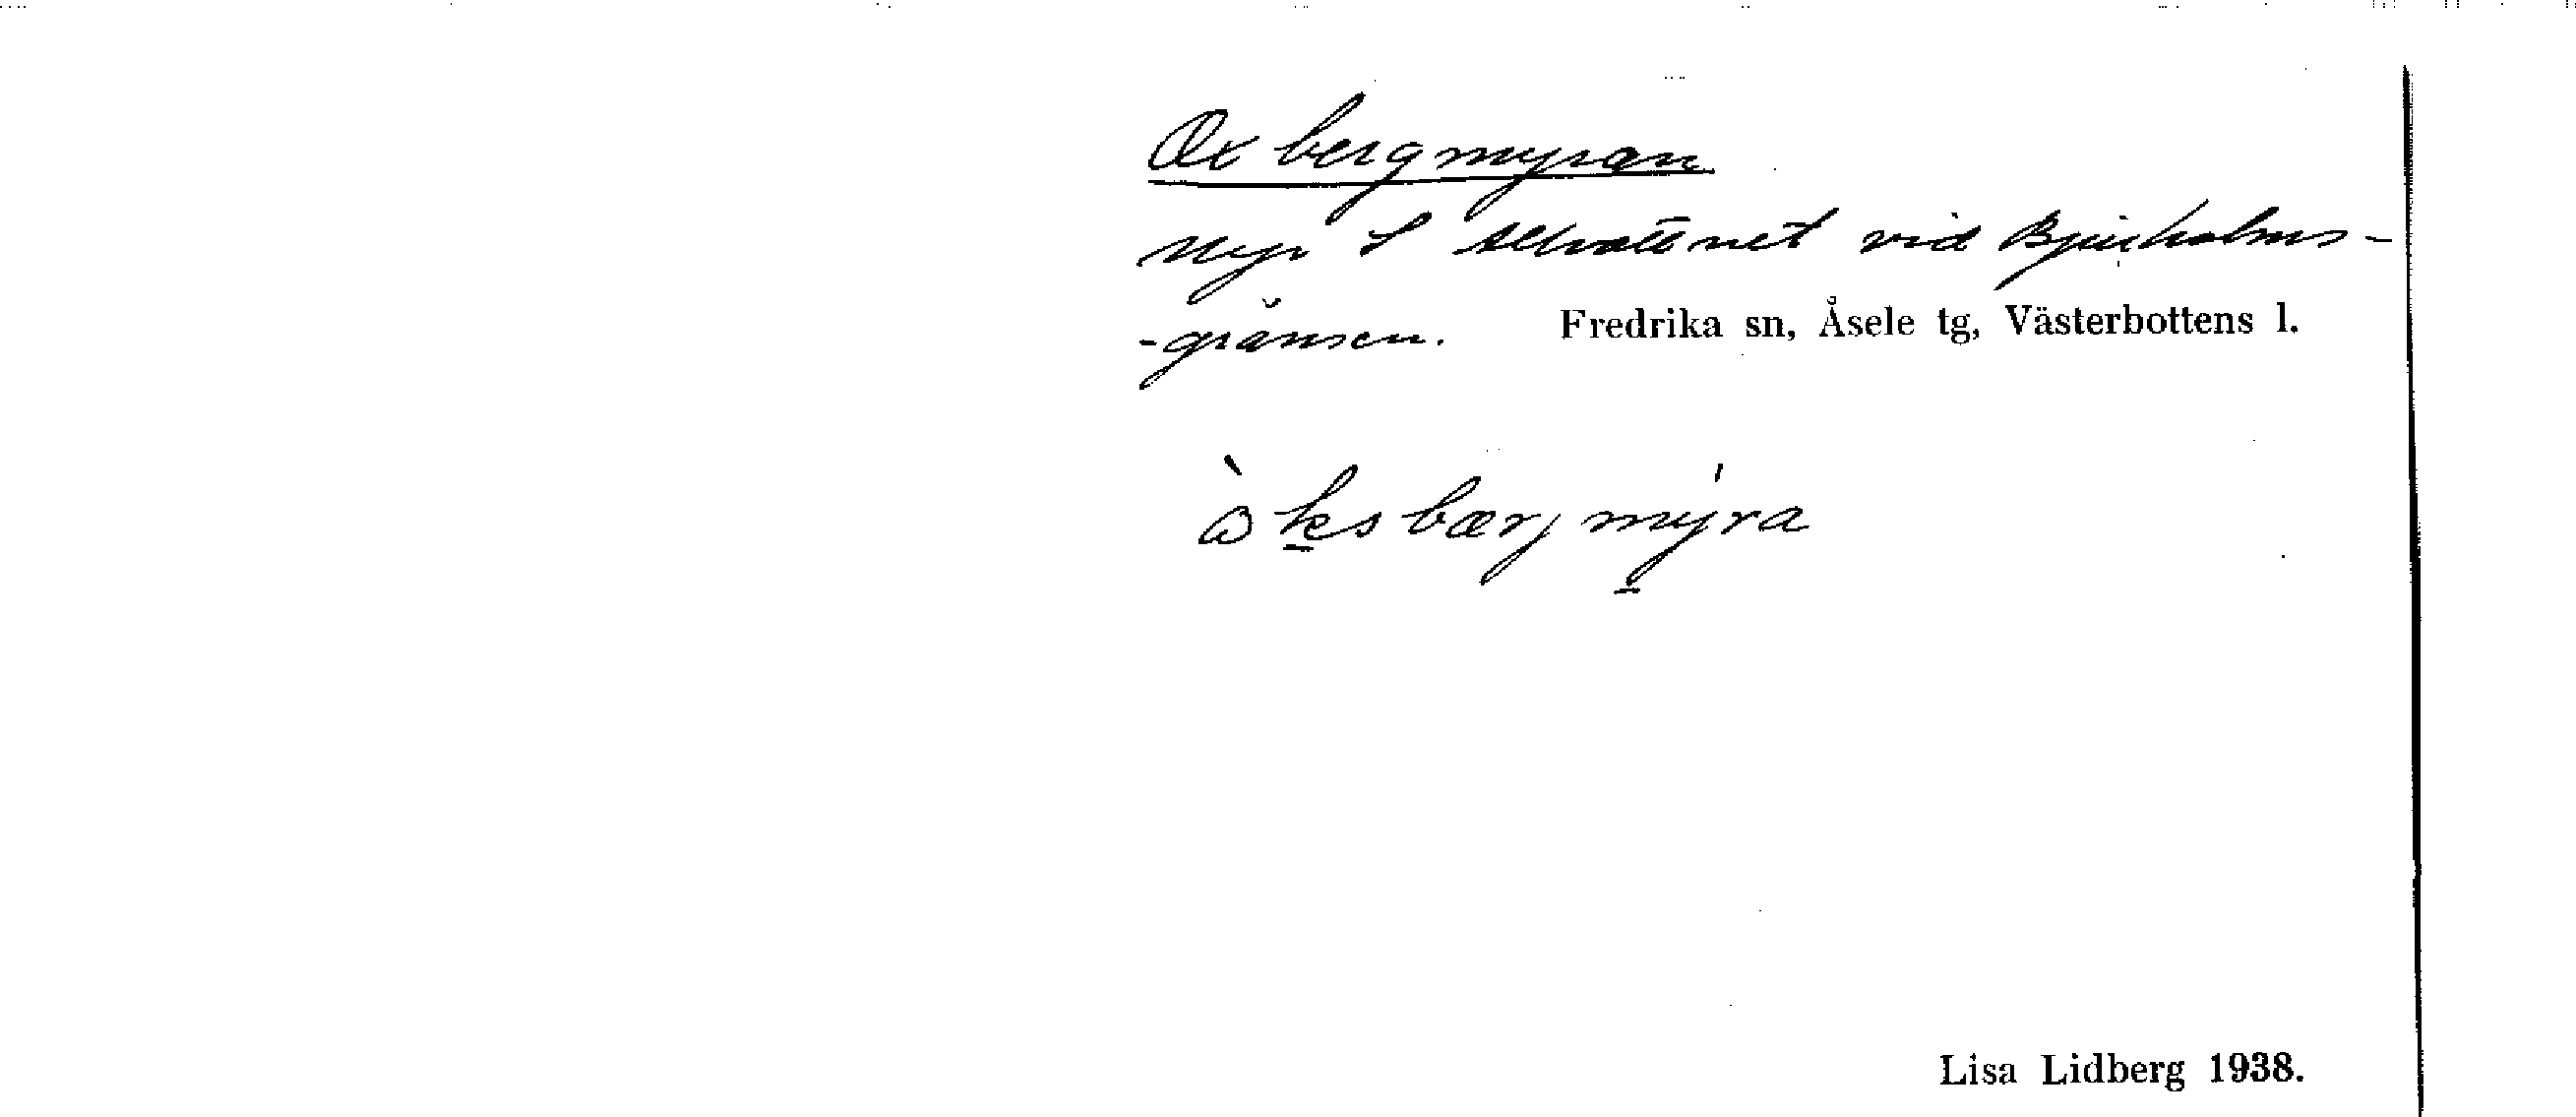 Oxbergmyran
Myr S vid Bjurholms-
-gränsen. Fredrika sn, Åsele tg, Västerbottens l.
ὼksbærjmy̍ra
Lisa Lidberg 1938.